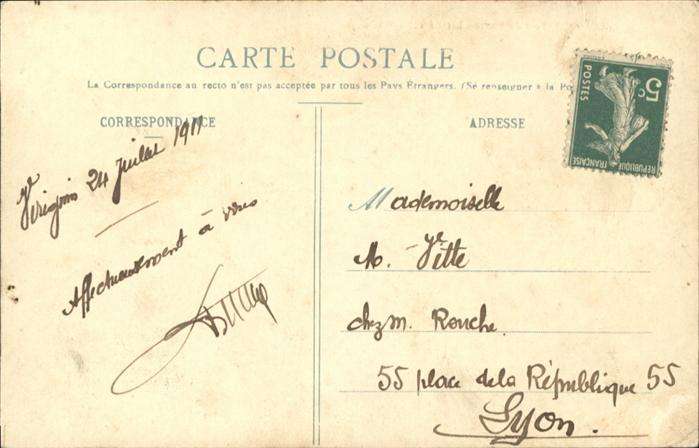 CARTE POSTALE
La Correspondance au recto n'est pas acceptée par tous les Pays Étrangers. (Se renseigner à la Po
CORRESPONDANCE
24 Juillet 1911
Affectueusement à vous
ADRESSE
Mademoiselle
M. Vitte
chez m. Rouche
55 place de la République 55
Lyon.
5c
POSTES
RÉPUBLIQUE FRANÇAISE